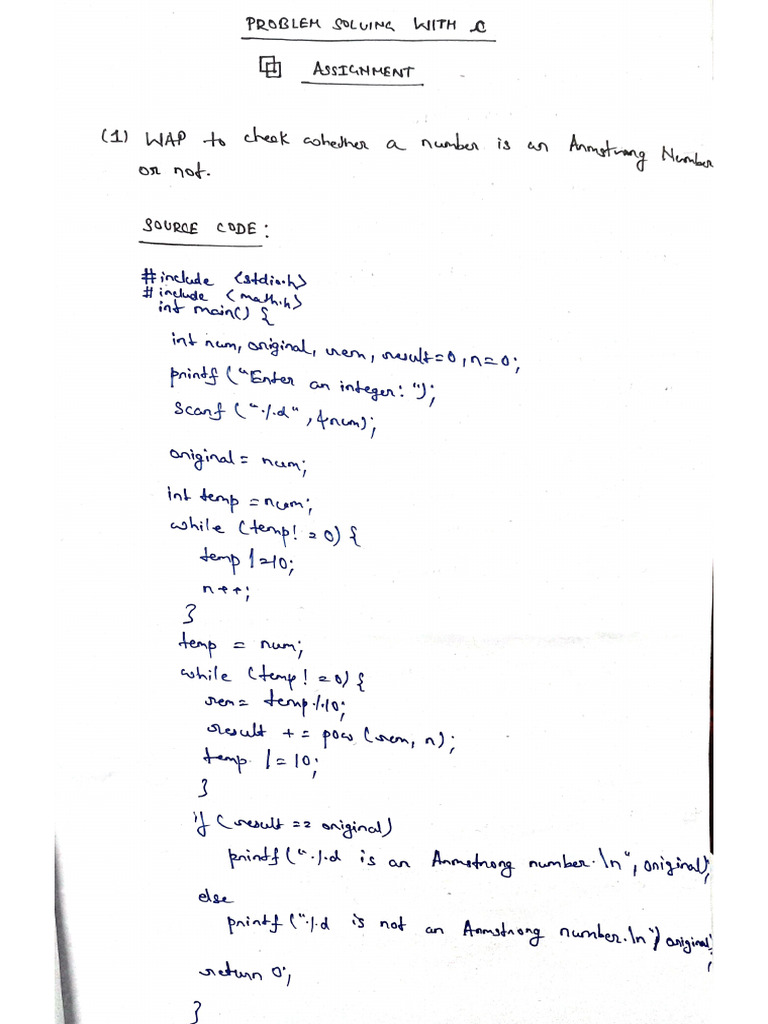 PROBLEM SOLVING WITH C
ASSIGNMENT
(1) WAP to check whether a number is an Armstrong Number
or not.
SOURCE CODE:
#include <stdio.h>
#include <math.h>
int main() {
int num, original, rem, result=0, n=0;
printf ("Enter an integer: ");
scanf ("%d", &num);
original = num;
int temp = num;
while (temp! = 0) {
temp /=10;
n++;
}
temp = num;
while (temp! = 0) {
rem= temp%10;
result += pow (rem, n);
temp /= 10;
}
if (result == original)
printf ("%d is an Armstrong number.\n", original);
else
printf ("%d is not an Armstrong number.\n") original;
return 0;
}